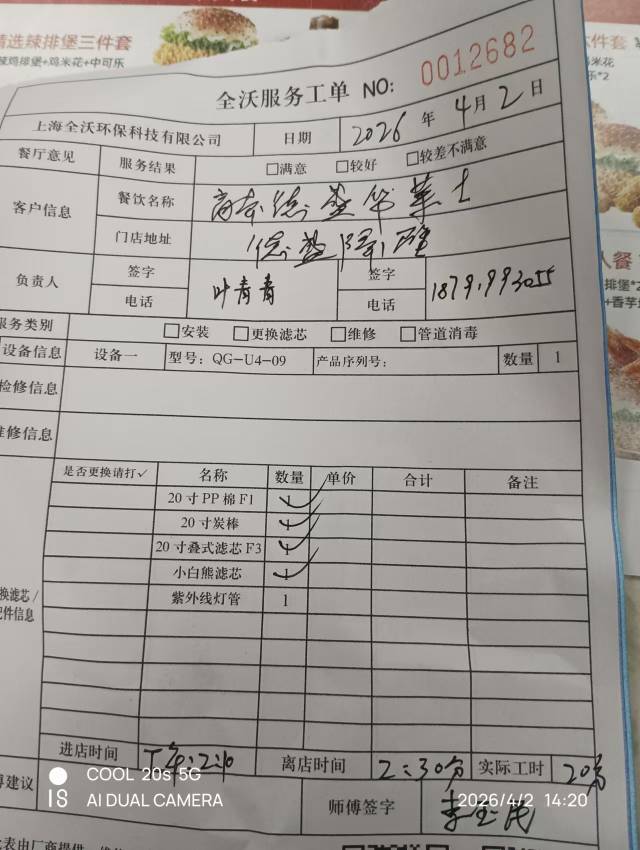 精选辣排堡三件套
辣鸡排堡+鸡米花+中可乐
全沃服务工单 NO: 0012682
上海全沃环保科技有限公司 日期 2026 年 4 月 2 日
餐厅意见 服务结果 □满意 □较好 □较差不满意
客户信息 餐饮名称 华莱士
门店地址
负责人 签字 叶青青 签字
电话 电话
服务类别 □安装 □更换滤芯 □维修 □管道消毒
设备信息 设备一 型号: QG-U4-09 产品序列号: 数量 1
检修信息
维修信息
是否更换请打✓ 名称 数量 单价 合计 备注
20寸PP棉F1 1
20寸炭棒 1
20寸叠式滤芯F3 1
小白熊滤芯 1
紫外线灯管 1
换滤芯/
配件信息
进店时间 下午:2:10 离店时间 2:30分 实际工时 20分
建议 师傅签字
COOL 20s 5G
AI DUAL CAMERA
2026/4/2 14:20